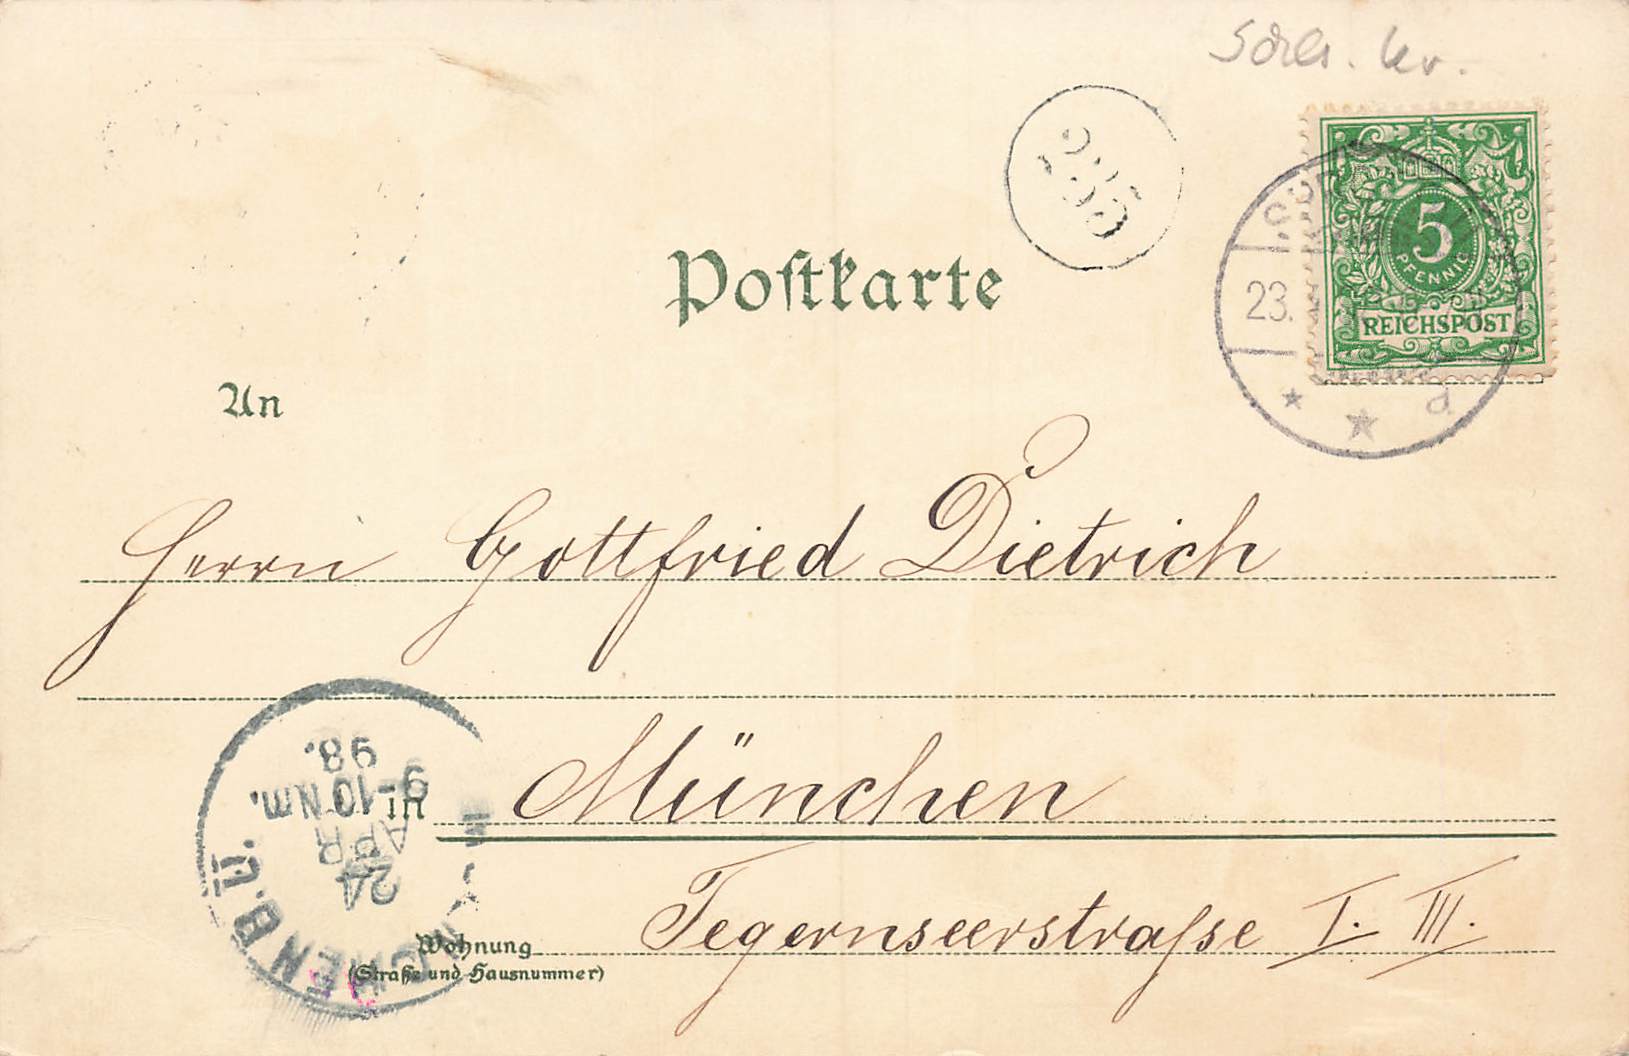 236
5
PFENNIG
REICHSPOST
23.
d
Poſtkarte
An
Herrn Gottfried Dietrich
in München
Wohnung Tegernseerstraſse I. III.
(Straße und Hausnummer)
MÜNCHEN B.B.
24
APR
9-10 Nm.
98.